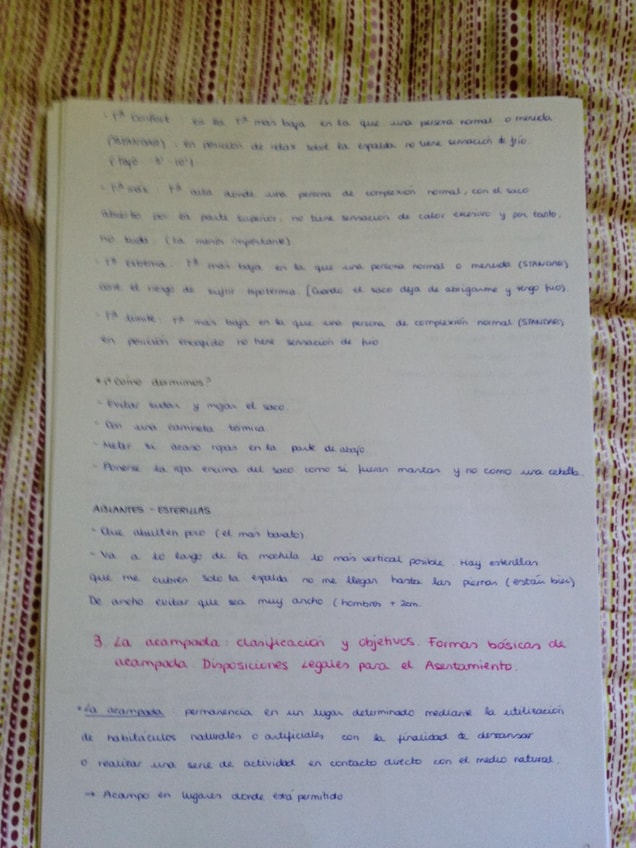 · Tª Confort: es la Tª más baja en la que una persona normal o menuda
(STANDARD): en posición de relax sobre la espalda no tiene sensación de frío.
· Tª max: Tª alta donde una persona de complexión normal, con el saco
abierto por la parte superior, no tiene sensación de calor excesivo y por tanto,
no suda. (La menos importante)
- Tª extrema: Tª más baja en la que una persona normal o menuda (STANDAR)
corre el riesgo de sufrir hipotermia. (Cuando el saco deja de abrigarme y tengo frío).
- Tª límite: Tª más baja en la que una persona de complexión normal (STANDAR)
en posición encogido no tiene sensación de frío
* ¿Cómo dormimos?
- Evitar sudar y mojar el saco.
- Con una camiseta térmica
- Meter si acaso ropas en la parte de abajo
- Ponerse la ropa encima del saco como si fueran mantas y no como una cebolla.
AISLANTES - ESTERILLAS
- Que abulten poco (el más barato).
- Va a lo largo de la mochila lo más vertical posible. Hay esterillas
que me cubren solo la espalda no me llegan hasta las piernas (están bien)
De ancho evitar que sea muy ancho (hombros + 2cm.
3. La acampada: clasificación y objetivos. Formas básicas de
acampada. Disposiciones Legales para el Asentamiento.
* La acampada: permanencia en un lugar determinado mediante la utilización
de habitáculos naturales o artificiales con la finalidad de descansar
o realizar una serie de actividad en contacto directo con el medio natural.
→ Acampo en lugares donde está permitido